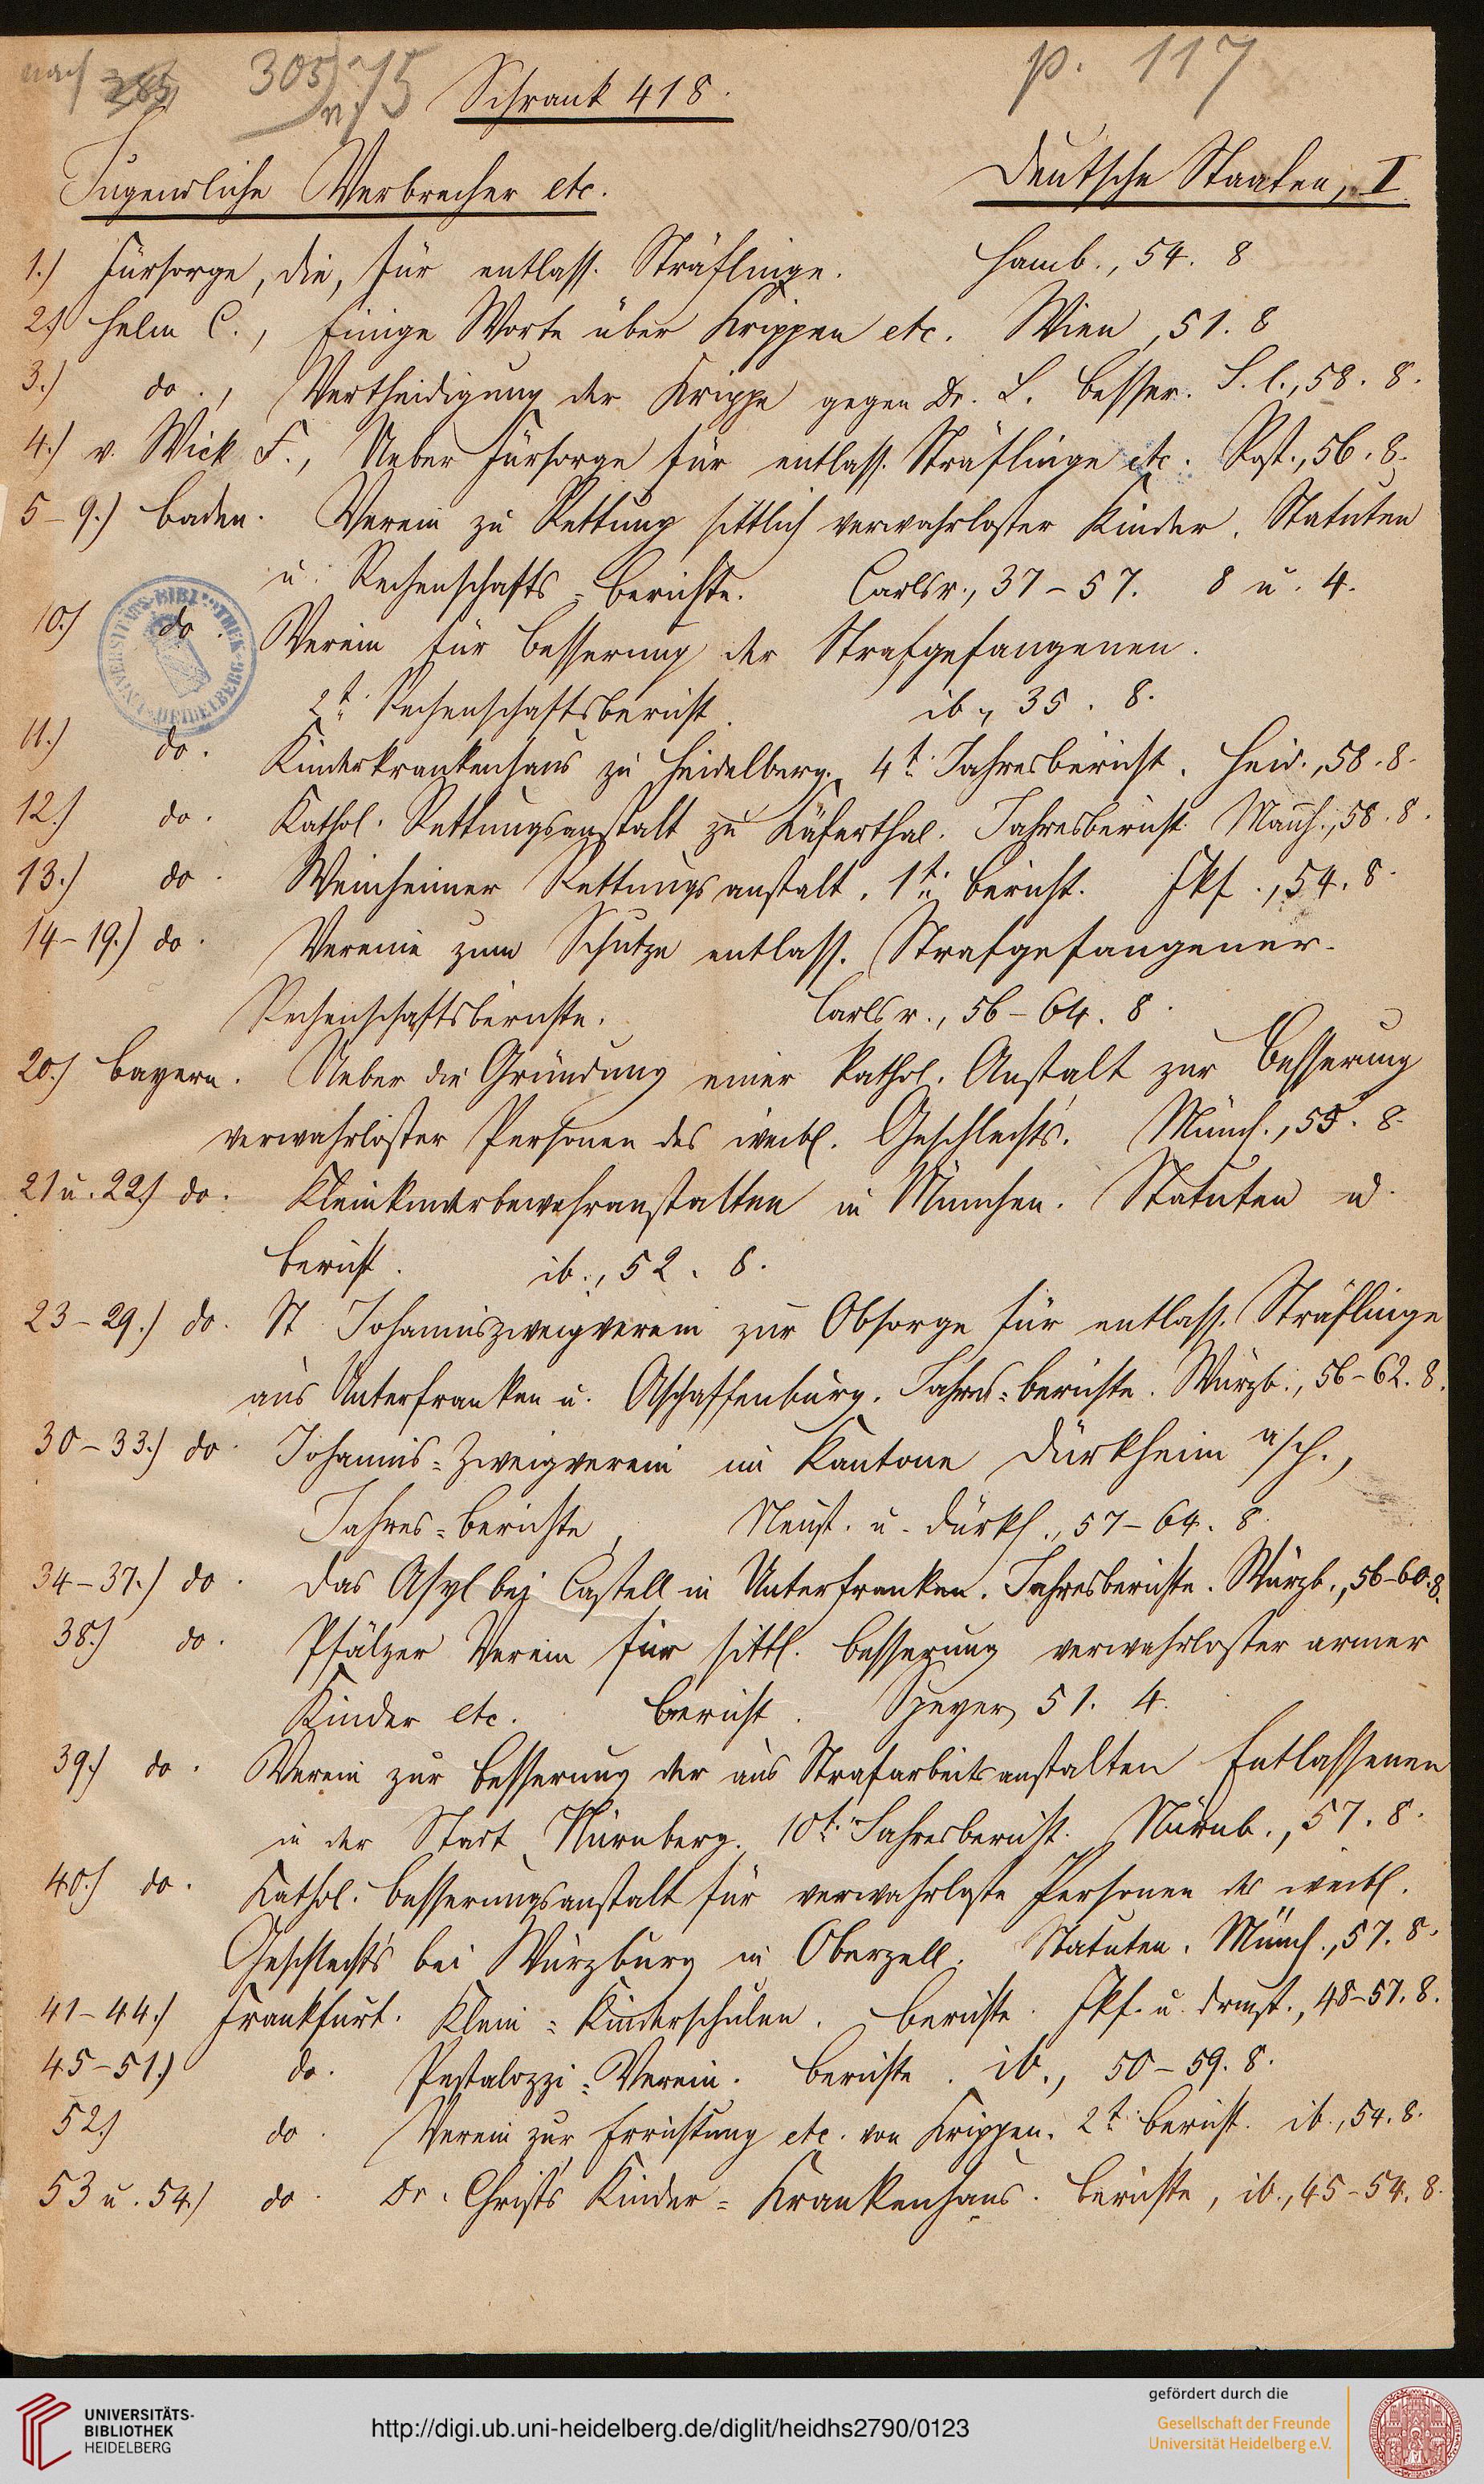 nach 285 305 n. 75 p. 117
Schrank 418.
Jugendliche Verbrecher etc. Deutsche Staaten, I.
1.) Fürsorge, die, für entlass. Sträflinge. Hamb., 54. 8
2.) Helm C., Einige Worte über Krippen etc. Wien, 51. 8
3.) do., Vertheidigung der Krippe gegen Dr. L. Besser. S. l., 58. 8.
4.) v. Wick F., Ueber Fürsorge für entlass. Sträflinge etc. Rost., 56. 8.
5-9.) Baden. Verein zu Rettung sittlich verwahrloster Kinder. Statuten
u. Rechenschafts-Berichte. Carlsr., 37-57. 8 u. 4.
10.) do. Verein für Besserung der Strafgefangenen.
2t. Rechenschaftsbericht. ib., 35. 8.
11.) do. Kinderkrankenhaus zu Heidelberg. 4t. Jahresbericht. Heid., 58. 8.
12.) do. Kathol. Rettungsanstalt zu Käferthal. Jahresbericht. Mannh., 58. 8.
13.) do. Weinheimer Rettungsanstalt. 1t. Bericht. Fkf., 54. 8.
14-19.) do. Vereine zum Schutze entlass. Strafgefangener.
Rechenschaftsberichte. Carlsr., 56-64. 8.
20.) Bayern. Ueber die Gründung einer kathol. Anstalt zur Besserung
verwahrloster Personen des weibl. Geschlechts. Münch., 55. 8.
21 u. 22.) do. Kleinkinderbewahranstalten in München. Statuten u.
Bericht. ib., 52. 8.
23-29.) do. St Johanniszweigverein zur Obsorge für entlass. Sträflinge
aus Unterfranken u. Aschaffenburg. Jahres-Berichte. Würzb., 56-62. 8.
30-33.) do. Johannis-Zweigverein im Kantone Dürkheim a/H.,
Jahres-Berichte, Neust. u. Dürkh., 57-64. 8.
34-37.) do. Das Asyl bei Castell in Unterfranken. Jahresberichte. Würzb., 56-60. 8.
38.) do. Pfälzer Verein für sittl. Besserung verwahrloster armer
Kinder etc. Bericht. Speyer, 51. 4.
39.) do. Verein zur Besserung der aus Strafarbeitsanstalten Entlassenen
in der Stadt Nürnberg. 10t. Jahresbericht. Nürnb., 57. 8.
40.) do. Kathol. Besserungsanstalt für verwahrloste Personen des weibl.
Geschlechts bei Würzburg in Oberzell. Statuten. Münch., 57. 8.
41-44.) Frankfurt. Klein-Kinderschulen. Berichte. Fkf. u. Drmst., 48-57. 8.
45-51.) do. Pestalozzi-Verein. Berichte. ib., 50-59. 8.
52.) do. Verein zur Errichtung etc. von Krippen. 2t. Bericht. ib., 54. 8.
53 u. 54.) do. Dr. Christ's Kinder-Krankenhaus. Berichte, ib., 45-54. 8.
UNIVERSITÄTS-BIBLIOTHEK HEIDELBERG
UNIVERSITÄTS-
BIBLIOTHEK
HEIDELBERG
http://digi.ub.uni-heidelberg.de/diglit/heidhs2790/0123
gefördert durch die
Gesellschaft der Freunde
Universität Heidelberg e.V.